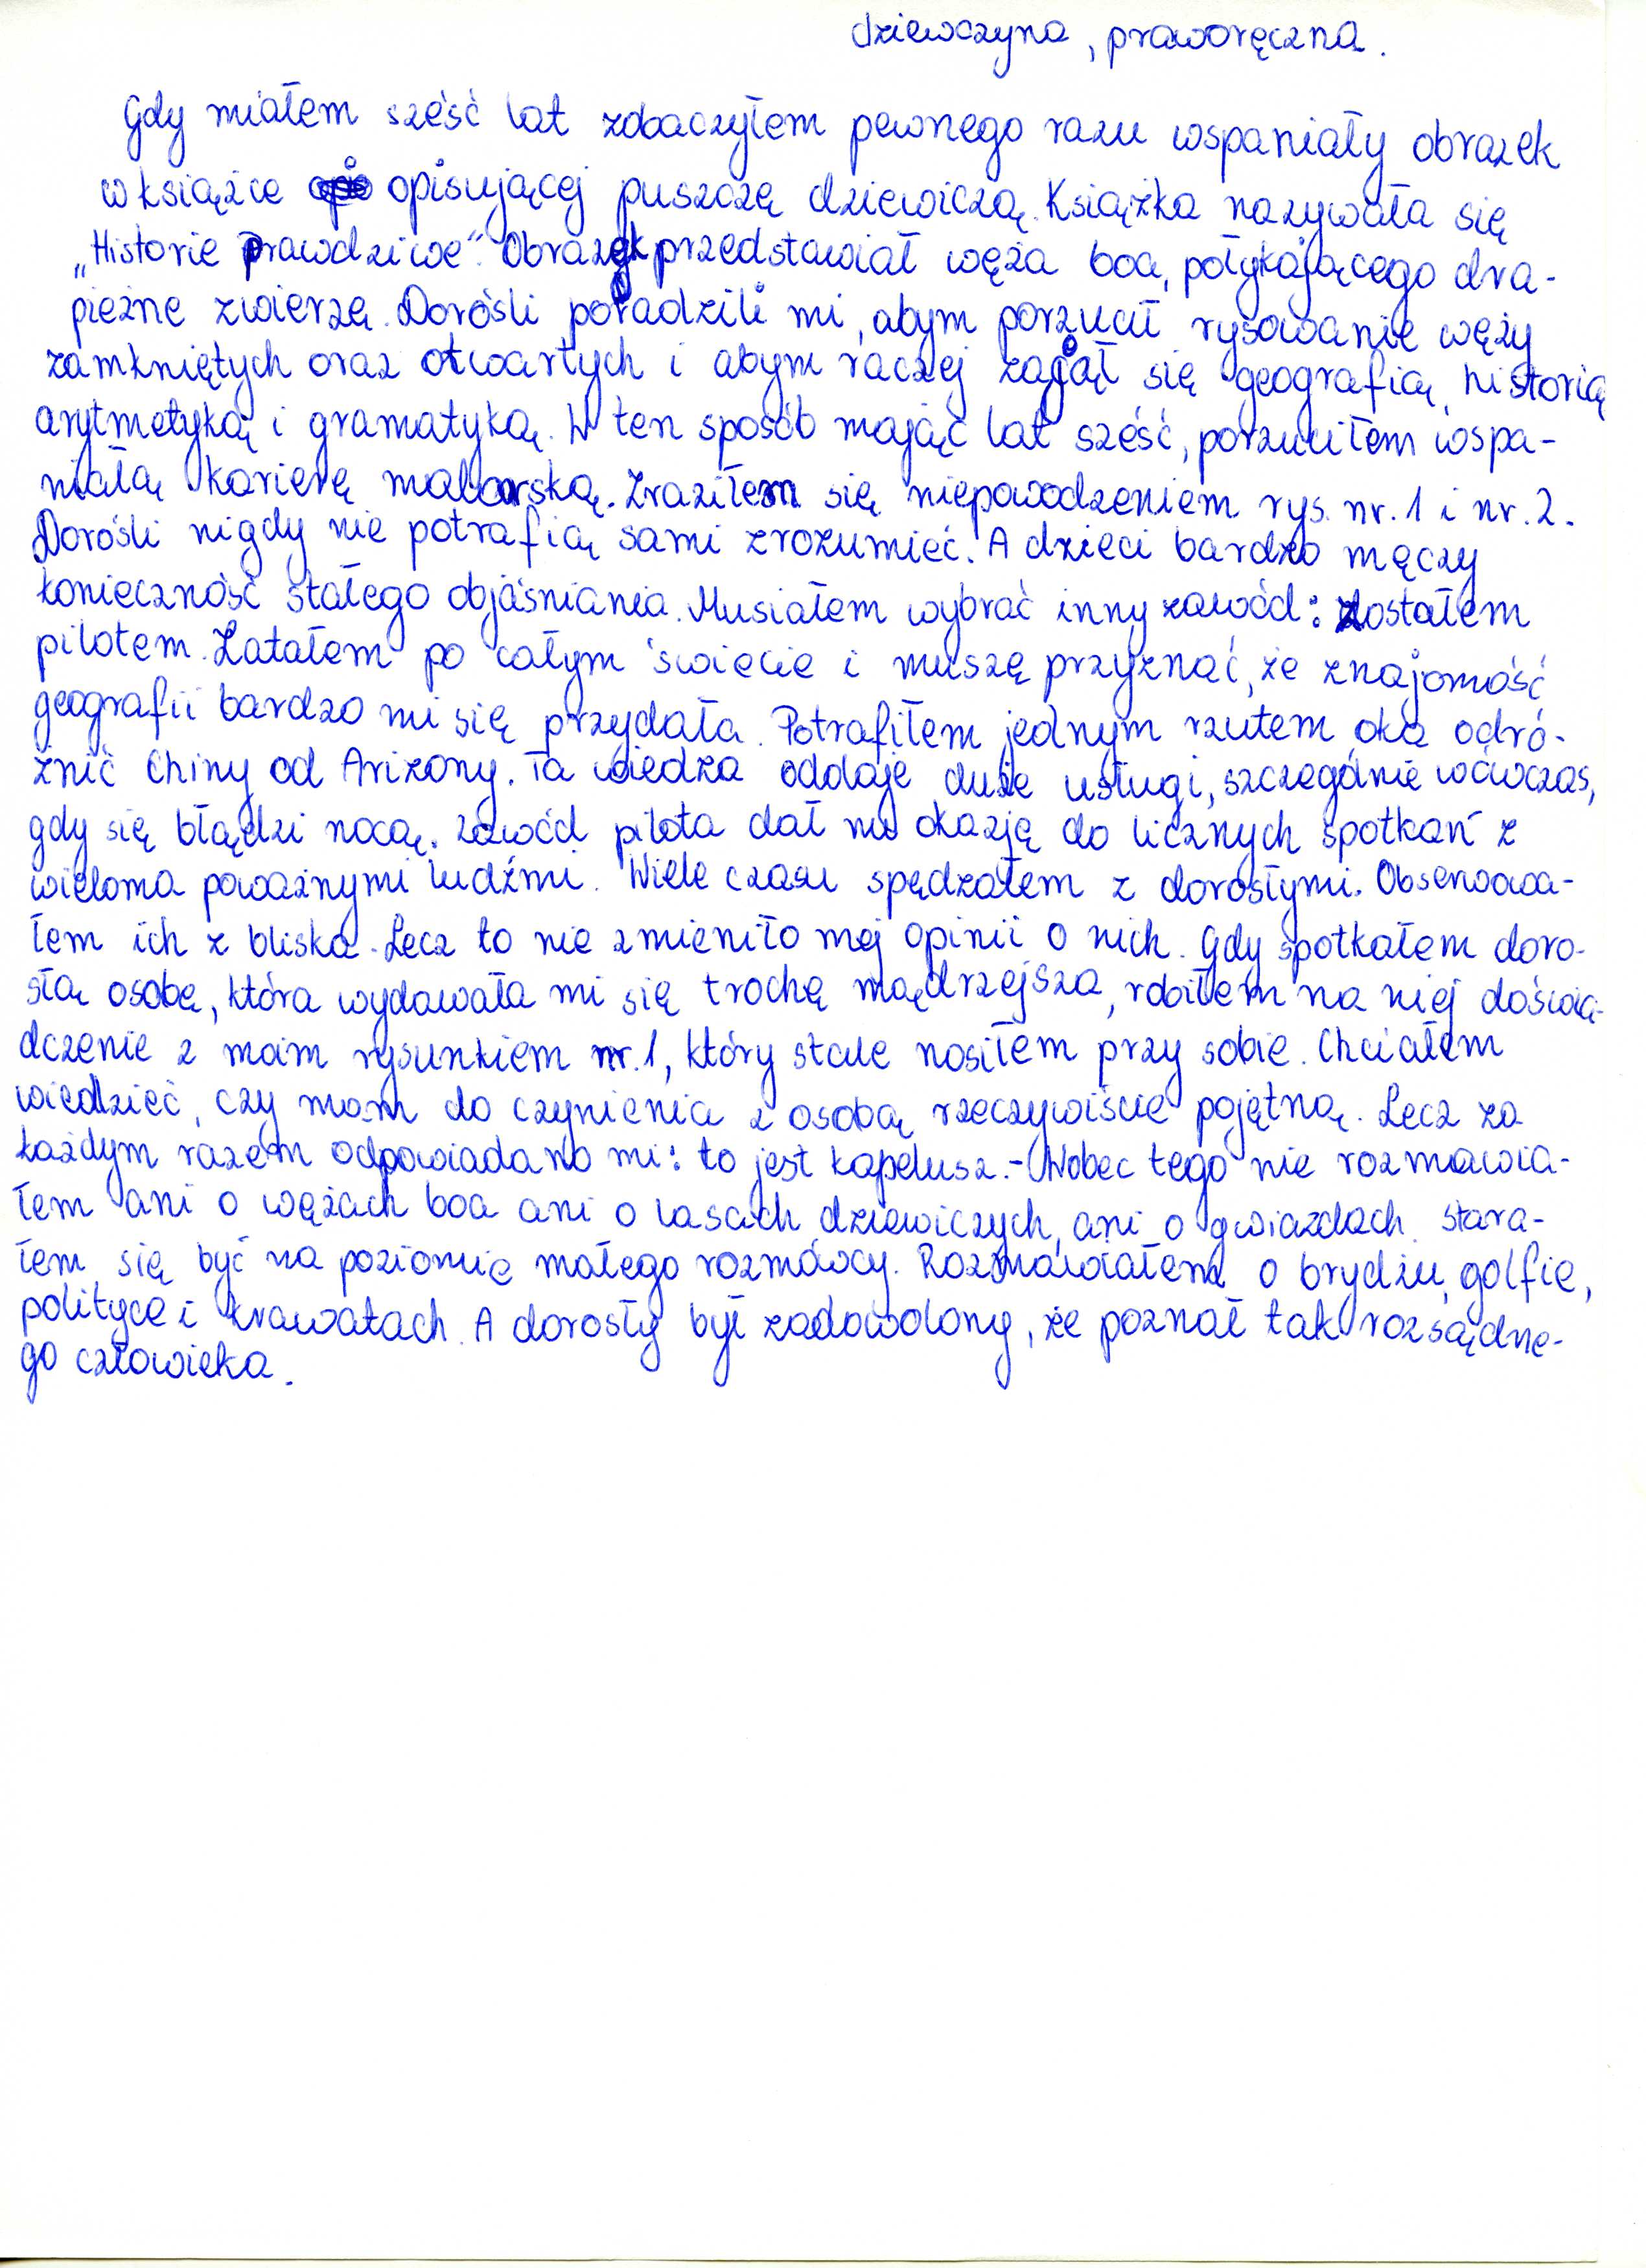 dziewczyna, praworęczna.
Gdy miałem sześć lat zobaczyłem pewnego razu wspaniały obrazek
w książce opisującej puszczę dziewiczą. Książka nazywała się
„Historie Prawdziwe". Obrazek przedstawiał węża boa, połykającego dra-
pieżne zwierzę. Dorośli poradzili mi, abym porzucił rysowanie węży
zamkniętych oraz otwartych i abym raczej zajął się geografią, historią
arytmetyką i gramatyką. W ten sposób mając lat sześć, porzuciłem wspa-
niałą karierę malarską. Zraziłem się niepowodzeniem rys. nr. 1 i nr. 2.
Dorośli nigdy nie potrafią sami zrozumieć. A dzieci bardzo męczy
konieczność stałego objaśniania. Musiałem wybrać inny zawód: zostałem
pilotem. Latałem po całym świecie i muszę przyznać, że znajomość
geografii bardzo mi się przydała. Potrafiłem jednym rzutem oka odró-
żnić Chiny od Arizony. Ta wiedza oddaje duże usługi, szczególnie wówczas,
gdy się błądzi nocą. Zawód pilota dał mi okazję do licznych spotkań z
wieloma poważnymi ludźmi. Wiele czasu spędzałem z dorosłymi. Obserwowa-
łem ich z bliska. Lecz to nie zmieniło mej opinii o nich. Gdy spotkałem doro-
słą osobę, która wydawała mi się trochę mądrzejsza, robiłem na niej doświa-
dczenie z moim rysunkiem nr. 1, który stale nosiłem przy sobie. Chciałem
wiedzieć, czy mam do czynienia z osobą rzeczywiście pojętną. Lecz za
każdym razem odpowiadano mi: to jest kapelusz. - Wobec tego nie rozmawia-
łem ani o wężach boa ani o lasach dziewiczych, ani o gwiazdach. Stara-
łem się być na poziomie małego rozmówcy. Rozmawiałem o brydżu, golfie,
polityce i krawatach. A dorosły był zadowolony, że poznał tak rozsądne-
go człowieka.